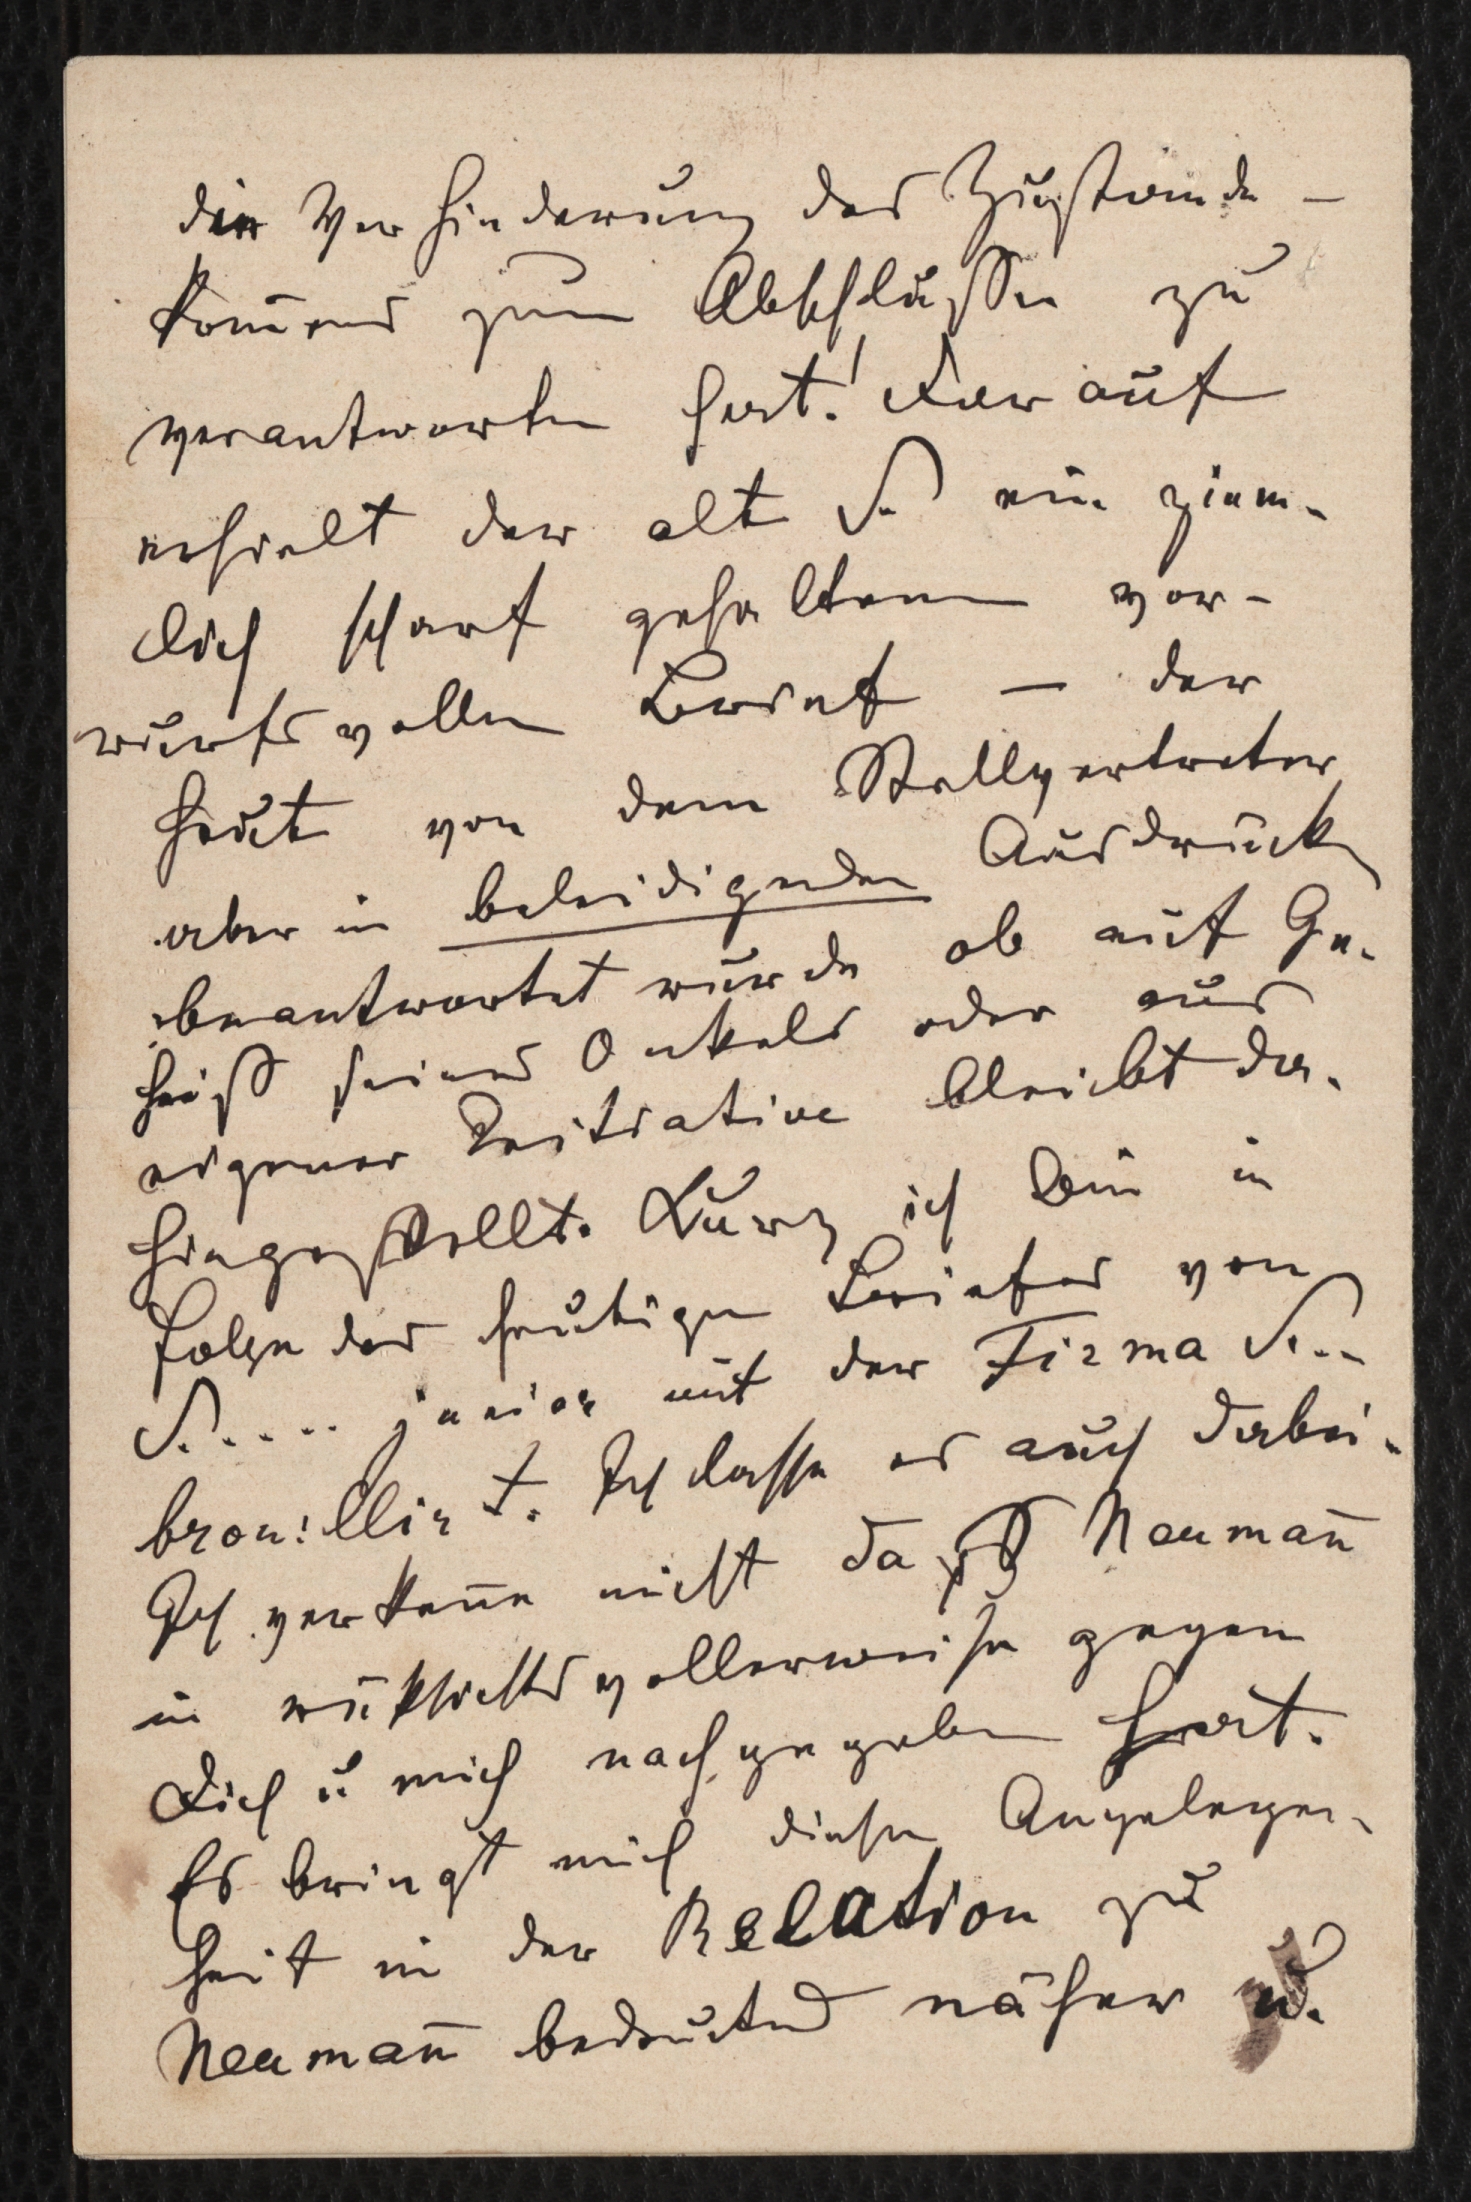 die Verhinderung des Zustande-
kom̄ens zum Abschlusse zu
verantworten hat! Darauf
erhielt der alte S. eine ziem-
lich scharf gehaltenen vor-
wurfsvollen Brief — der
heute von dem Stellvertreter
aber in beleidigenden Ausdrücken
beantwortet wurde ob auf Ge-
heiß seines Onkels oder aus
eigener Initiative bleibt da-
hingestellt. Kurz ich bin in
Folge des heutigen Briefes von
S..... junior mit der Firma S...
brouillirt. Ich lasse es auch dabei.
Ich verken̄e nicht daß Neuman̄
in rücksichtsvollerweise gegen
Dich u mich nachgegeben hat.
Es bringt mich diese Angelegen-
heit in der Relation zu
Neuman̄ bedeutend näher u.